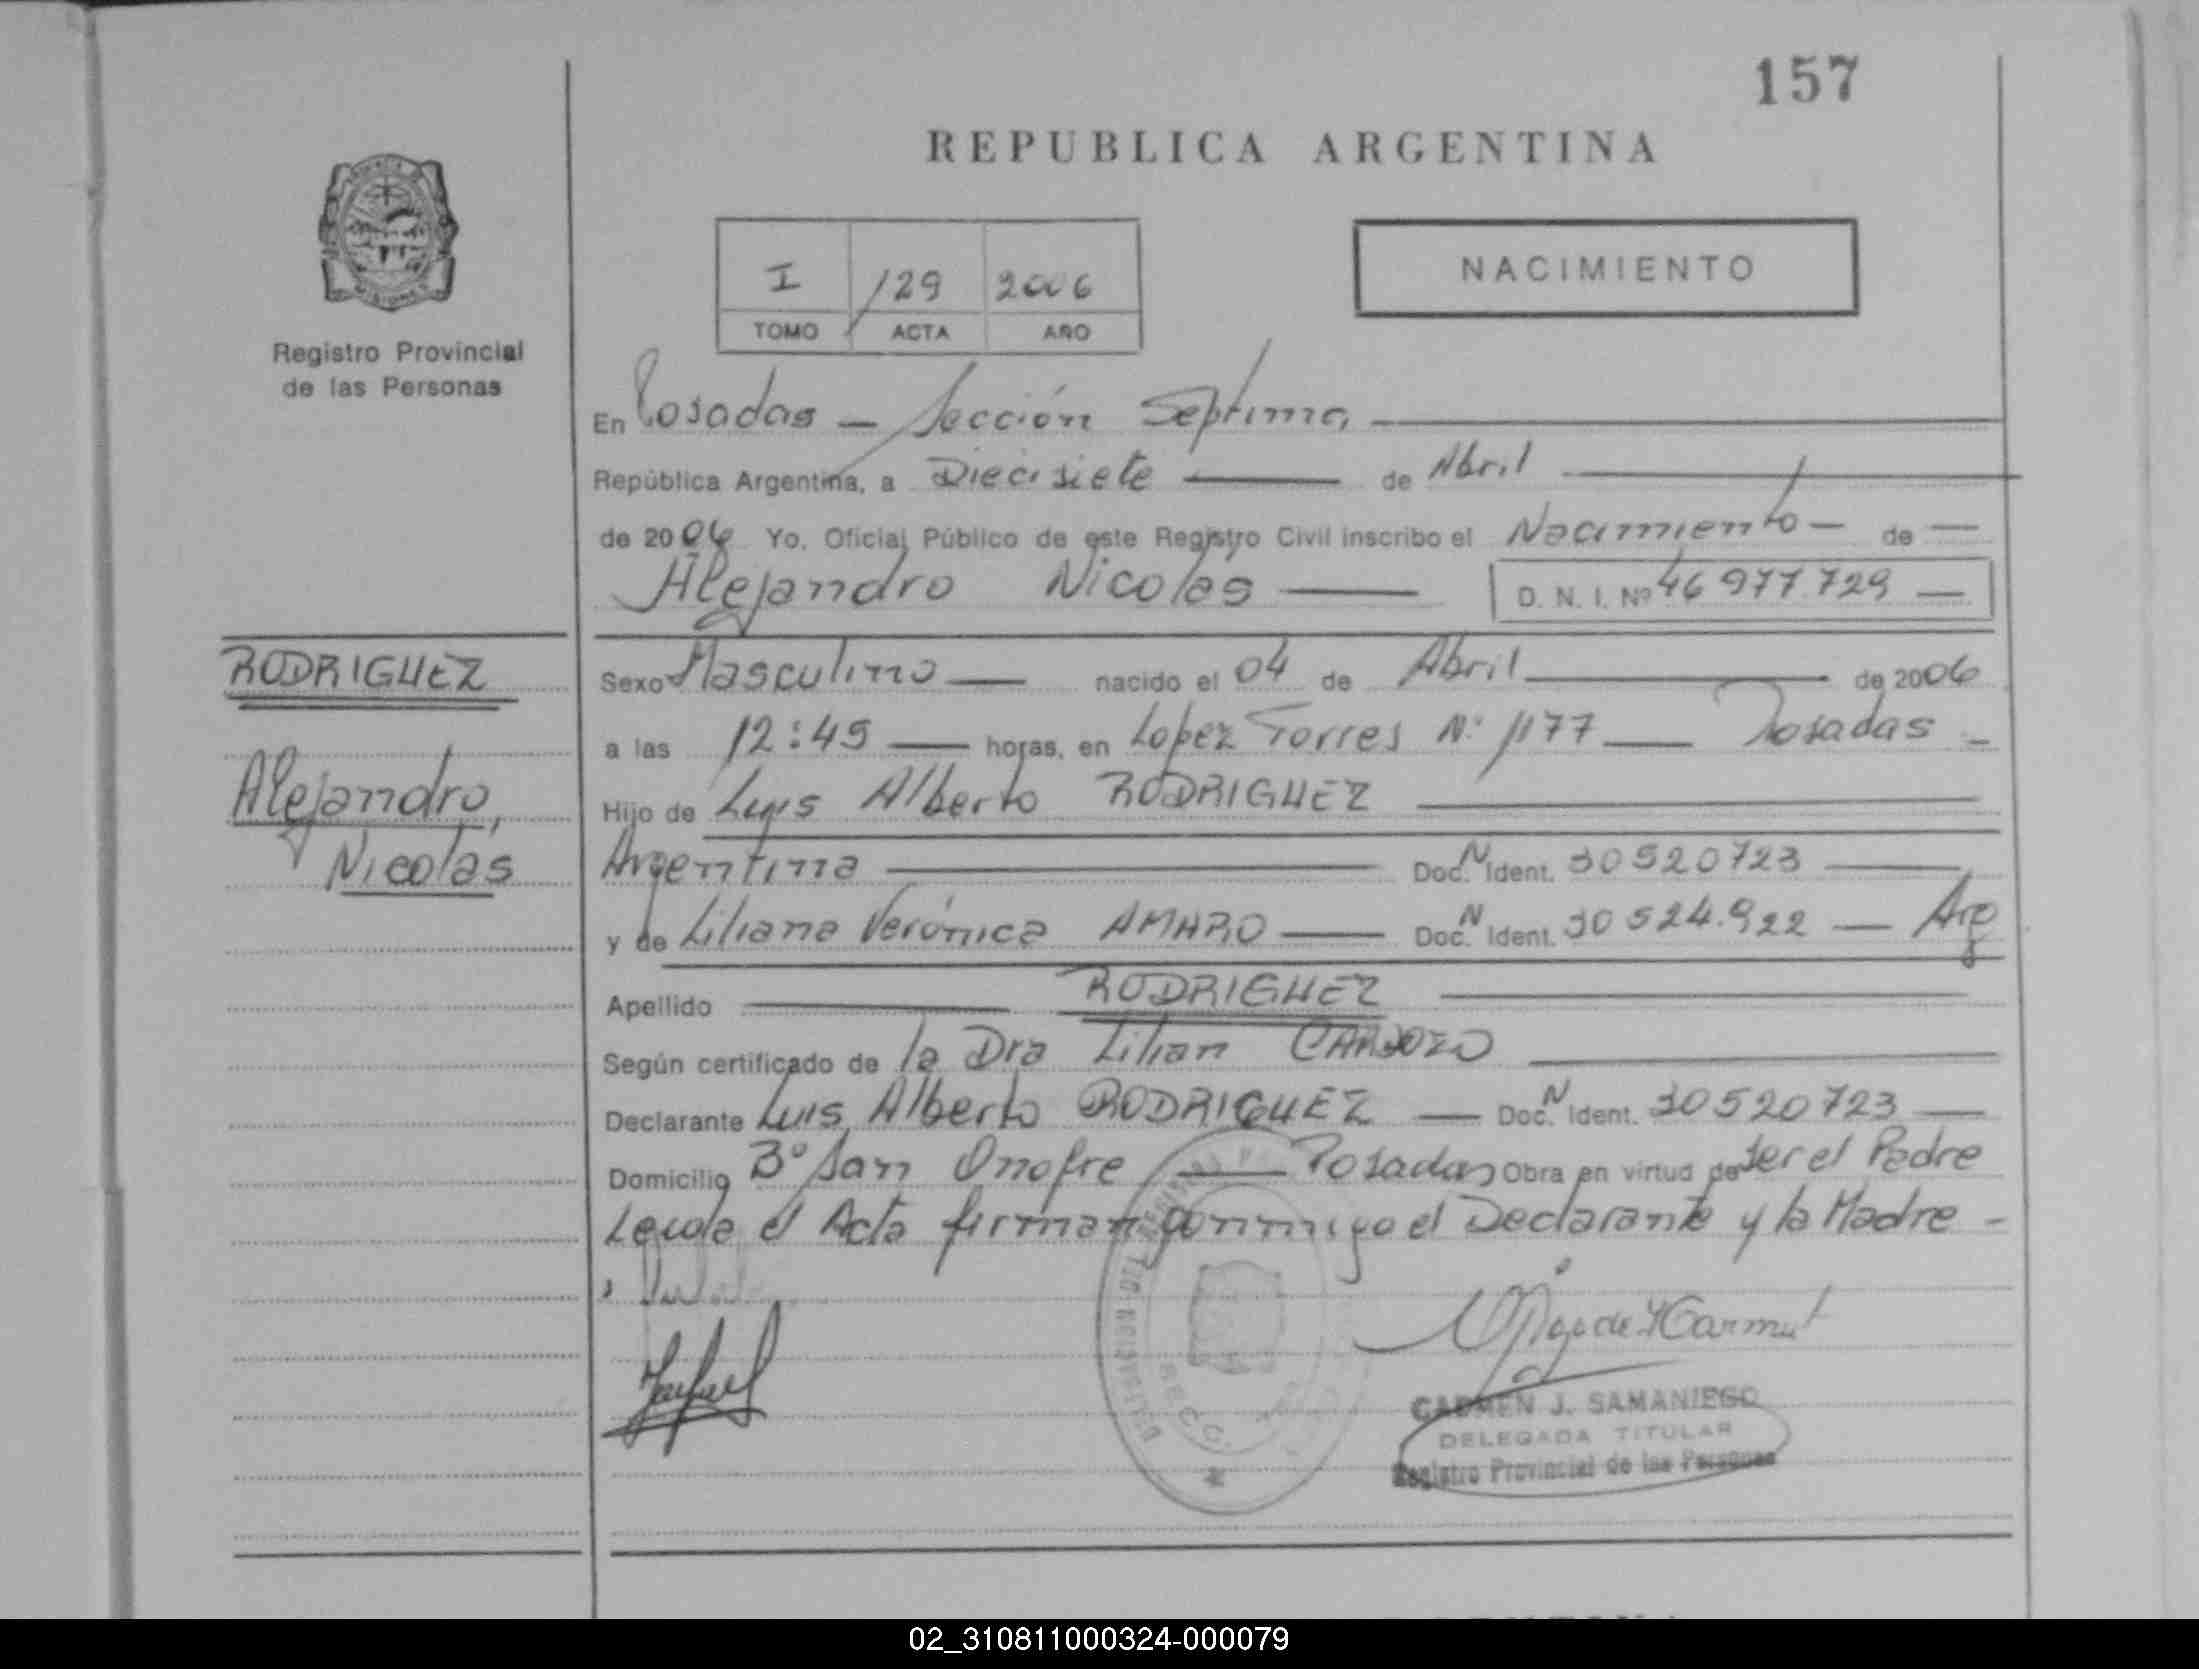 157
REPUBLICA ARGENTINA
I 129 2006
TOMO ACTA AÑO
NACIMIENTO
MISIONES
Registro Provincial
de las Personas
En Posadas — Sección Septima
República Argentina, a Diecisiete — de Abril
de 2006 Yo, Oficial Público de este Registro Civil inscribo el Nacimiento — de —
Alejandro Nicolás — D. N. I. Nº 46 977.729 —
RODRIGUEZ
Alejandro,
Nicolás
Sexo Masculino — nacido el 04 de Abril — de 2006
a las 12:45 — horas, en Lopez Torres Nº 1177 — Posadas —
Hijo de Luis Alberto RODRIGUEZ —
Argentina — Doc. N Ident. 30520723 —
y de Liliana Verónica AMARO — Doc. N Ident. 30524.922 — Arg
Apellido — RODRIGUEZ —
Según certificado de la Dra Lilian CARDOZO —
Declarante Luis Alberto RODRIGUEZ — Doc. N Ident. 30520723 —
Domicilio Bº San Onofre — Posadas Obra en virtud de ser el Padre
Leida el Acta firman conmigo el Declarante y la Madre —
CARMEN J. SAMANIEGO
DELEGADA TITULAR
Registro Provincial de las Personas
SECC.
02_310811000324-000079